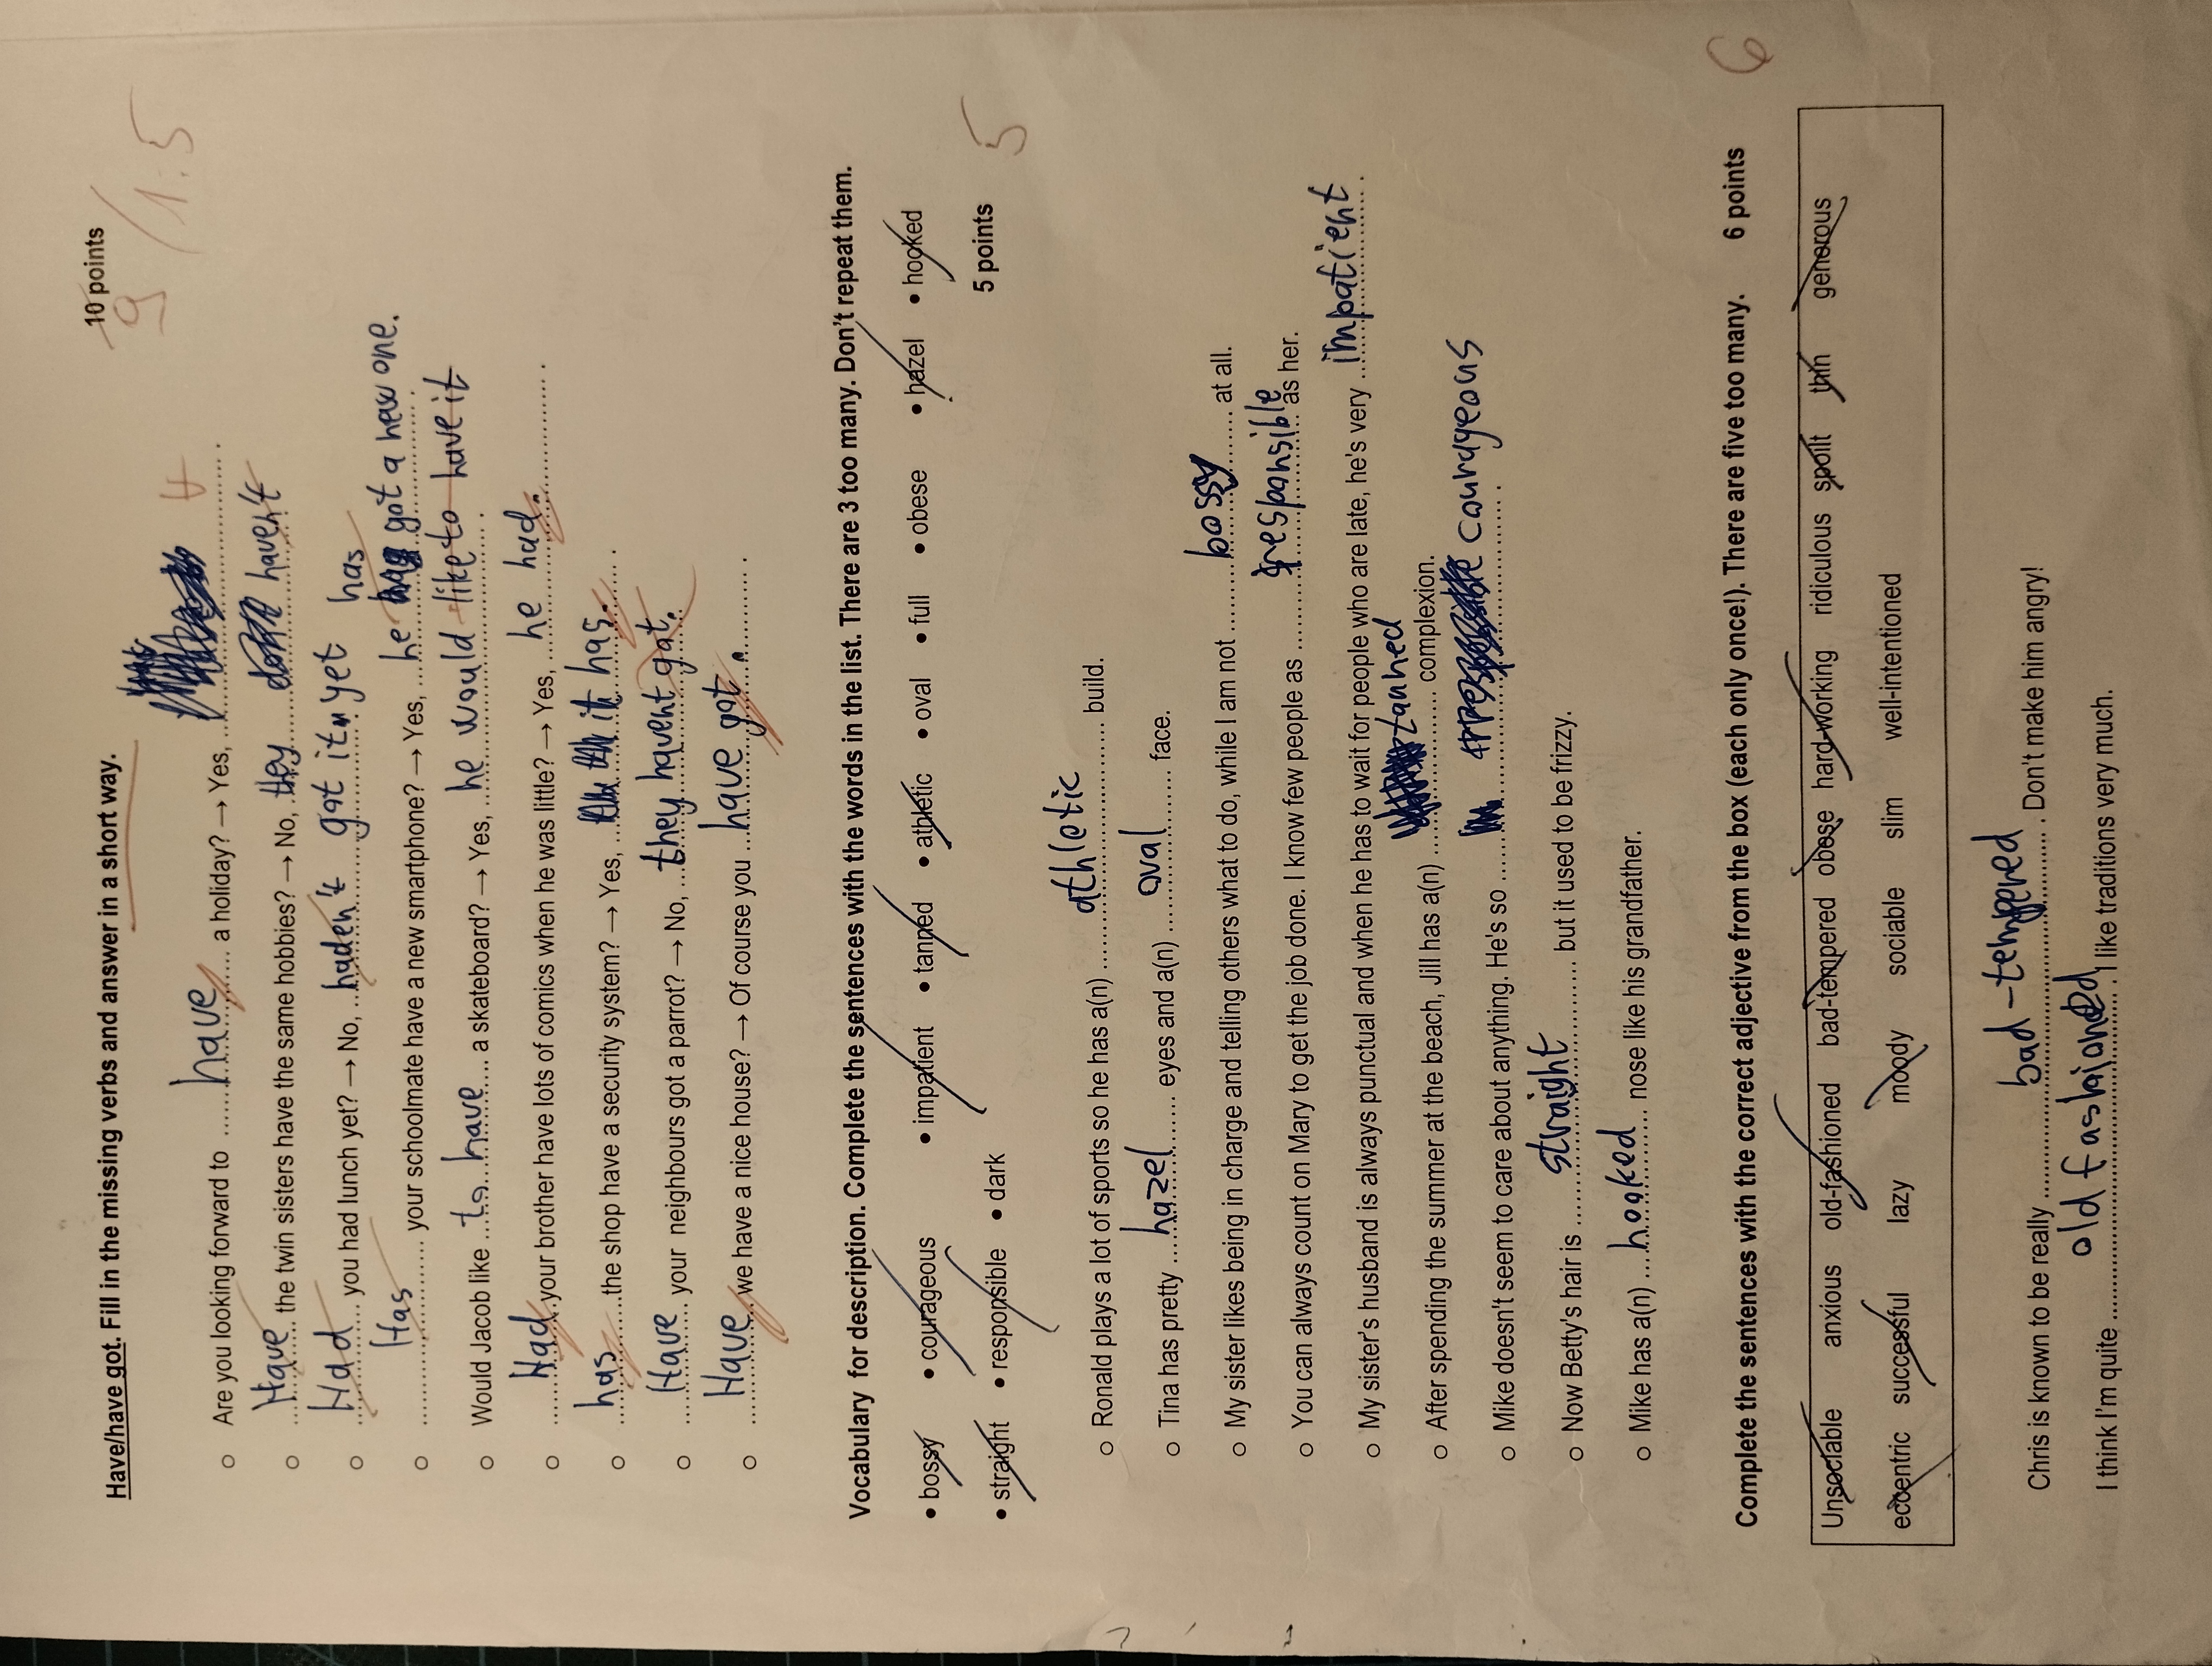 Have/have got. Fill in the missing verbs and answer in a short way. 10 points
9 / 1.5
Are you looking forward to ...... have ...... a holiday? → Yes, ...... .
Have the twin sisters have the same hobbies? → No, they haven't
Had you had lunch yet? → No, haden't got it yet
Has your schoolmate have a new smartphone? → Yes, he has got a new one.
Would Jacob like to have a skateboard? → Yes, he would like to have it
Had your brother have lots of comics when he was little? → Yes, he had.
has the shop have a security system? → Yes, it has.
Have your neighbours got a parrot? → No, they havent got.
Have we have a nice house? → Of course you have got.
Vocabulary for description. Complete the sentences with the words in the list. There are 3 too many. Don't repeat them.
• bossy • courageous • impatient • tanned • athletic • oval • full • obese • hazel • hooked
• straight • responsible • dark 5 points 5
Ronald plays a lot of sports so he has a(n) athletic build.
Tina has pretty hazel eyes and a(n) oval face.
My sister likes being in charge and telling others what to do, while I am not bossy at all.
You can always count on Mary to get the job done. I know few people as responsible as her.
My sister's husband is always punctual and when he has to wait for people who are late, he's very impatient.
After spending the summer at the beach, Jill has a(n) tanned complexion.
Mike doesn't seem to care about anything. He's so courageous.
Now Betty's hair is straight but it used to be frizzy.
Mike has a(n) hooked nose like his grandfather.
Complete the sentences with the correct adjective from the box (each only once!). There are five too many. 6 points 6
Unsociable anxious old-fashioned bad-tempered obese hard-working ridiculous spoilt thin generous
eccentric successful lazy moody sociable slim well-intentioned
Chris is known to be really bad-tempered. Don't make him angry!
I think I'm quite old fashioned. I like traditions very much.